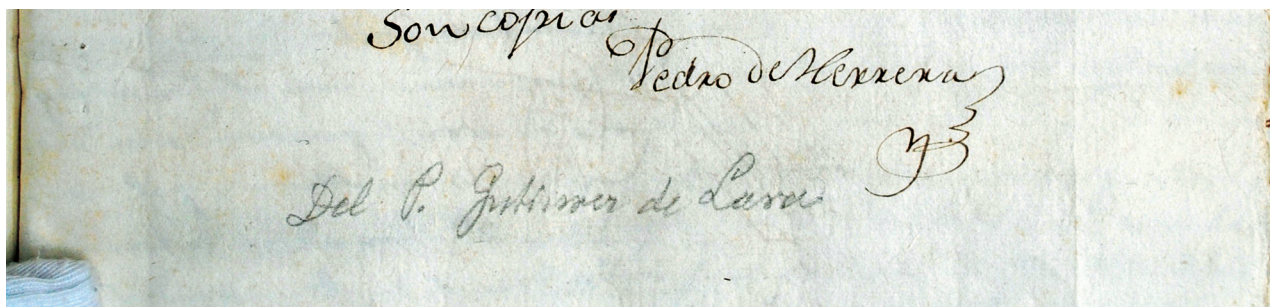 Son copias
Pedro de Herrera
Del P. Gutierrez de Lara